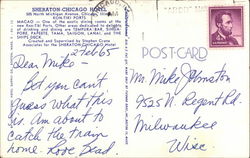 SHERATON-CHICAGO HOTEL
505 North Michigan Avenue, Chicago, Illinois
KON-TIKI PORTS
MACAO - One of the exotic dining rooms at the
new Kon-Tiki Ports. Other areas dedicated to delights
drinking and dining are TEMPURA BAR, SHIMA,
PORT, PAPEETE, TAMA, SAIGON, LANAI and THE
SHIPS DECK.
Created and Supervised by Stephen Crane
Associates for the SHERATON-CHICAGO Hotel
12 Feb 65
POST CARD
Dear Mike -
Bet you can't
guess what this
is. Am about to
catch the train
home. Love Dad.
Mr. Mike Johnston
9525 N. Regent Rd.
Milwaukee
Wisc